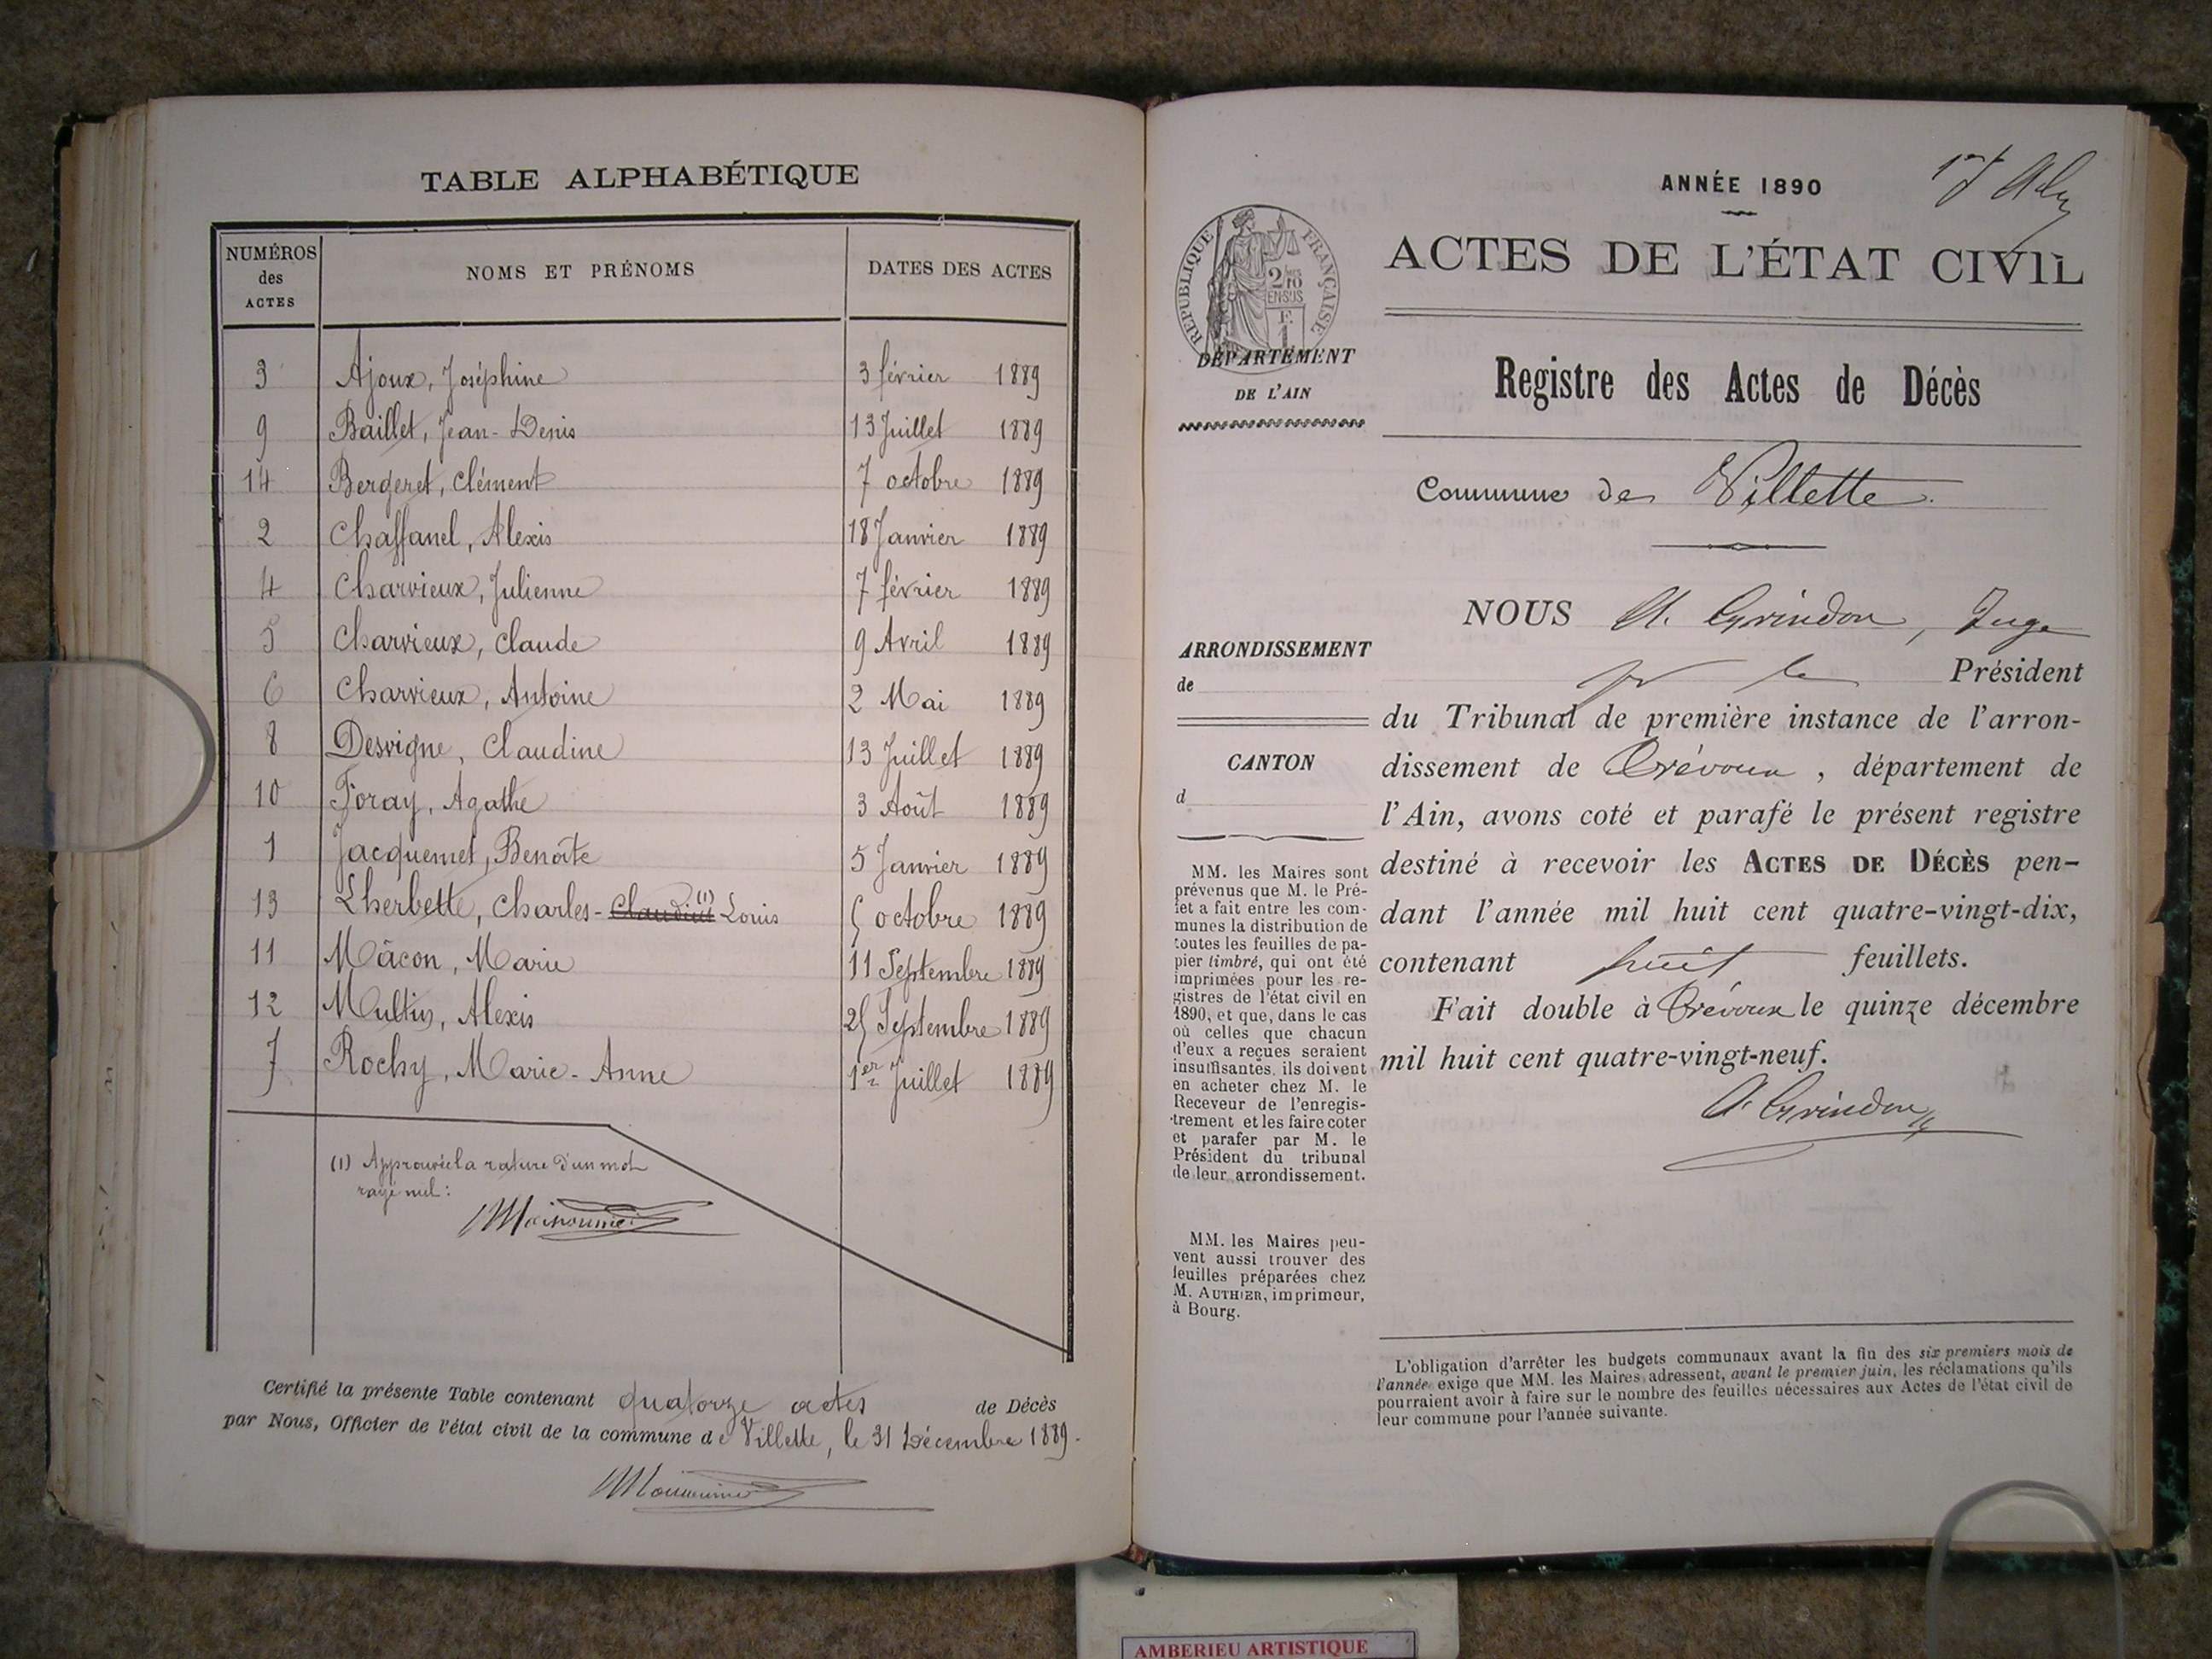 TABLE ALPHABÉTIQUE
NUMÉROS des ACTES NOMS ET PRÉNOMS DATES DES ACTES
3 Ajoux, Joséphine 3 février 1889
9 Baillet, Jean-Denis 13 Juillet 1889
14 Bergeret, Clément 7 octobre 1889
2 Chaffanel, Alexis 18 Janvier 1889
4 Charvieux, Julienne 7 février 1889
5 Charvieux, Claude 9 Avril 1889
6 Charvieux, Antoine 2 Mai 1889
8 Desvigne, Claudine 13 Juillet 1889
10 Foray, Agathe 3 Août 1889
1 Jacquemet, Benoîte 5 Janvier 1889
13 Lherbette, Charles-Claudius (1) Louis 5 octobre 1889
11 Mâcon, Marie 11 Septembre 1889
12 Multin, Alexis 25 Septembre 1889
7 Rochy, Marie-Anne 1er Juillet 1889
(1) Approuvé la rature d'un mot
rayé nul :
Certifié la présente Table contenant quatorze actes de Décès
par Nous, Officier de l'état civil de la commune de Villette, le 31 Décembre 1889.
ANNÉE 1890
ACTES DE L'ÉTAT CIVIL
RÉPUBLIQUE FRANÇAISE
2/10 EN SUS
F. 1
DÉPARTEMENT
DE L'AIN
Registre des Actes de Décès
Commune de Villette.
ARRONDISSEMENT
de
CANTON
d
MM. les Maires sont
prévenus que M. le Pré-
fet a fait entre les com-
munes la distribution de
toutes les feuilles de pa-
pier timbré, qui ont été
imprimées pour les re-
gistres de l'état civil en
1890, et que, dans le cas
où celles que chacun
d'eux a reçues seraient
insuffisantes, ils doivent
en acheter chez M. le
Receveur de l'enregis-
trement et les faire coter
et parafer par M. le
Président du tribunal
de leur arrondissement.
MM. les Maires peu-
vent aussi trouver des
feuilles préparées chez
M. AUTHIER, imprimeur,
à Bourg.
NOUS A. Grindon, Juge
pr le Président
du Tribunal de première instance de l'arron-
dissement de Trévoux, département de
l'Ain, avons coté et parafé le présent registre
destiné à recevoir les ACTES DE DÉCÈS pen-
dant l'année mil huit cent quatre-vingt-dix,
contenant huit feuillets.
Fait double à Trévoux le quinze décembre
mil huit cent quatre-vingt-neuf.
A. Grindon
L'obligation d'arrêter les budgets communaux avant la fin des six premiers mois de
l'année exige que MM. les Maires adressent, avant le premier juin, les réclamations qu'ils
pourraient avoir à faire sur le nombre des feuilles nécessaires aux Actes de l'état civil de
leur commune pour l'année suivante.
AMBERIEU ARTISTIQUE